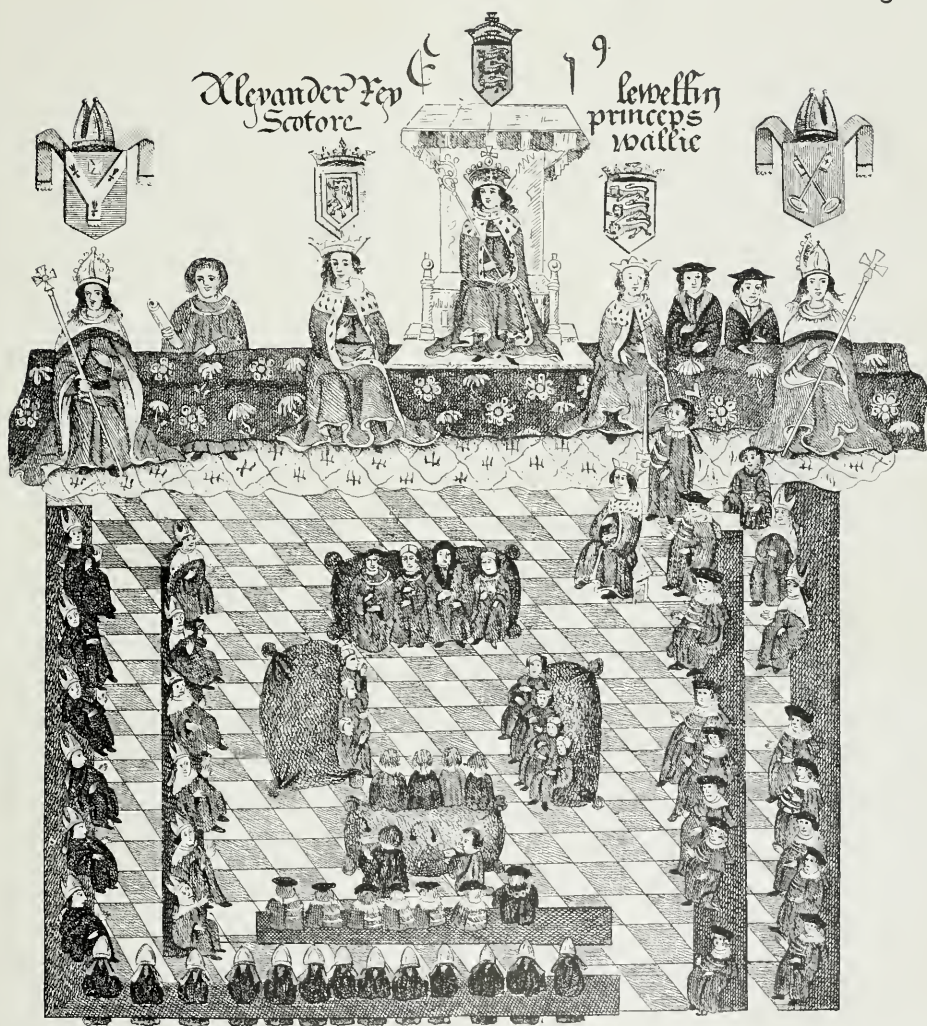 Alexander Rex
Scotore
E 1 9.
lewellin
princeps
wallie